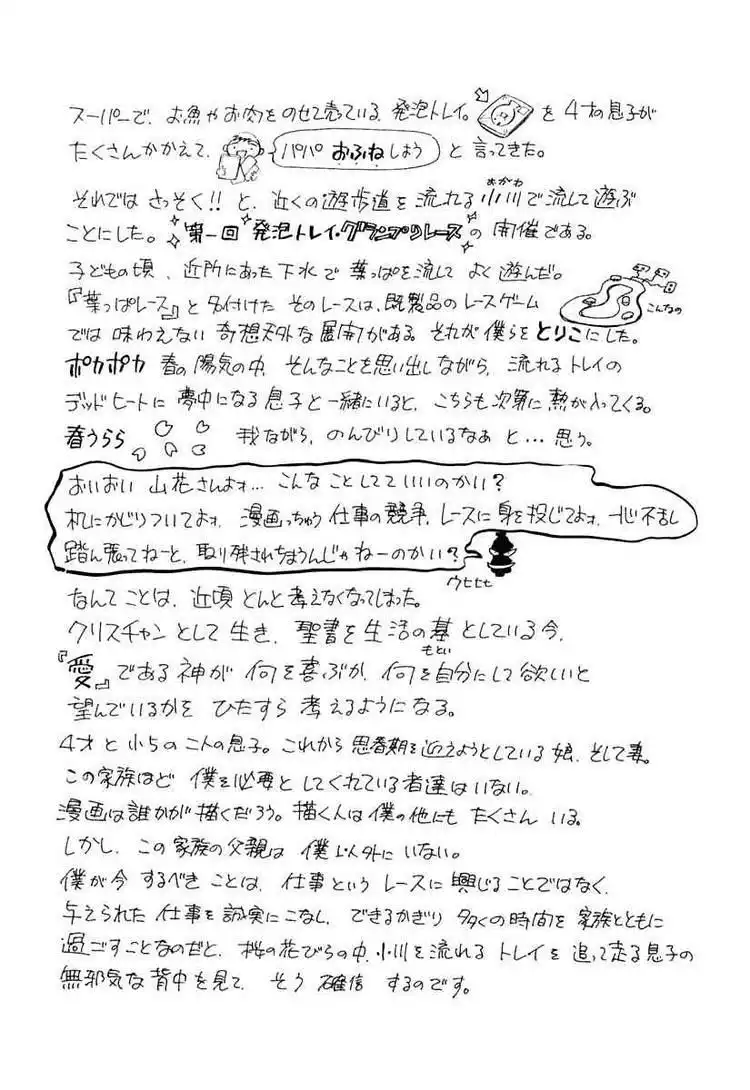 スーパーで、お魚やお肉をのせて売っている発泡トレイ。を4才の息子が
たくさんかかえて、パパおふねしよう と言ってきた。
それでは さっそく!! と、近くの遊歩道を流れる小川で流して遊ぶ
おがわ
ことにした。第一回 発泡トレイ・グランプリレースの開催である。
子どもの頃、近所にあった下水で葉っぱを流して よく遊んだ。
『葉っぱレース』と名付けた そのレースは、既製品のレースゲーム
こんなの
では味わえない奇想天外な展開がある。それが僕らをとりこにした。
ポカポカ 春の陽気の中、そんなことを思い出しながら、流れるトレイの
デッドヒートに夢中になる息子と一緒にいると、こちらも次第に熱が入ってくる。
春うらら 我ながら、のんびりしているなぁ と…思う。
おいおい 山花さんよォ…こんなことしてていいのかい?
机にかじりついてよォ、漫画っちゅう仕事の競争、レースに身を投じてよォ、一心不乱
踏ん張ってねーと、取り残されちまうんじゃねーのかい?
ウヒヒヒ
なんてことは、近頃とんと考えなくなってしまった。
クリスチャンとして生き、聖書を生活の基としている今、
もとい
『愛』である神が何を喜ぶか、何を自分にして欲しいと
望んでいるかを ひたすら 考えるようになる。
4才と小5の二人の息子。これから思春期を迎えようとしている娘、そして妻。
この家族ほど 僕を必要としてくれている者達はいない。
漫画は誰かが描くだろう。描く人は僕の他にも たくさん いる。
しかし、この家族の父親は 僕以外にいない。
僕が今 するべきことは、仕事というレースに興じることではなく、
与えられた仕事を誠実にこなし、できるかぎり 多くの時間を家族とともに
過ごすことなのだと、桜の花びらの中、小川を流れる トレイを追って走る息子の
無邪気な背中を見て、そう 確信 するのです。